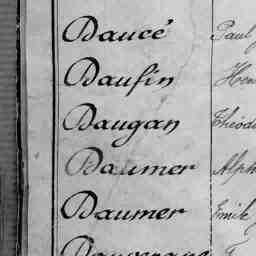 Daucé Paul
Daufin
Daugan Théod
Daumer Alph
Daumer Emile